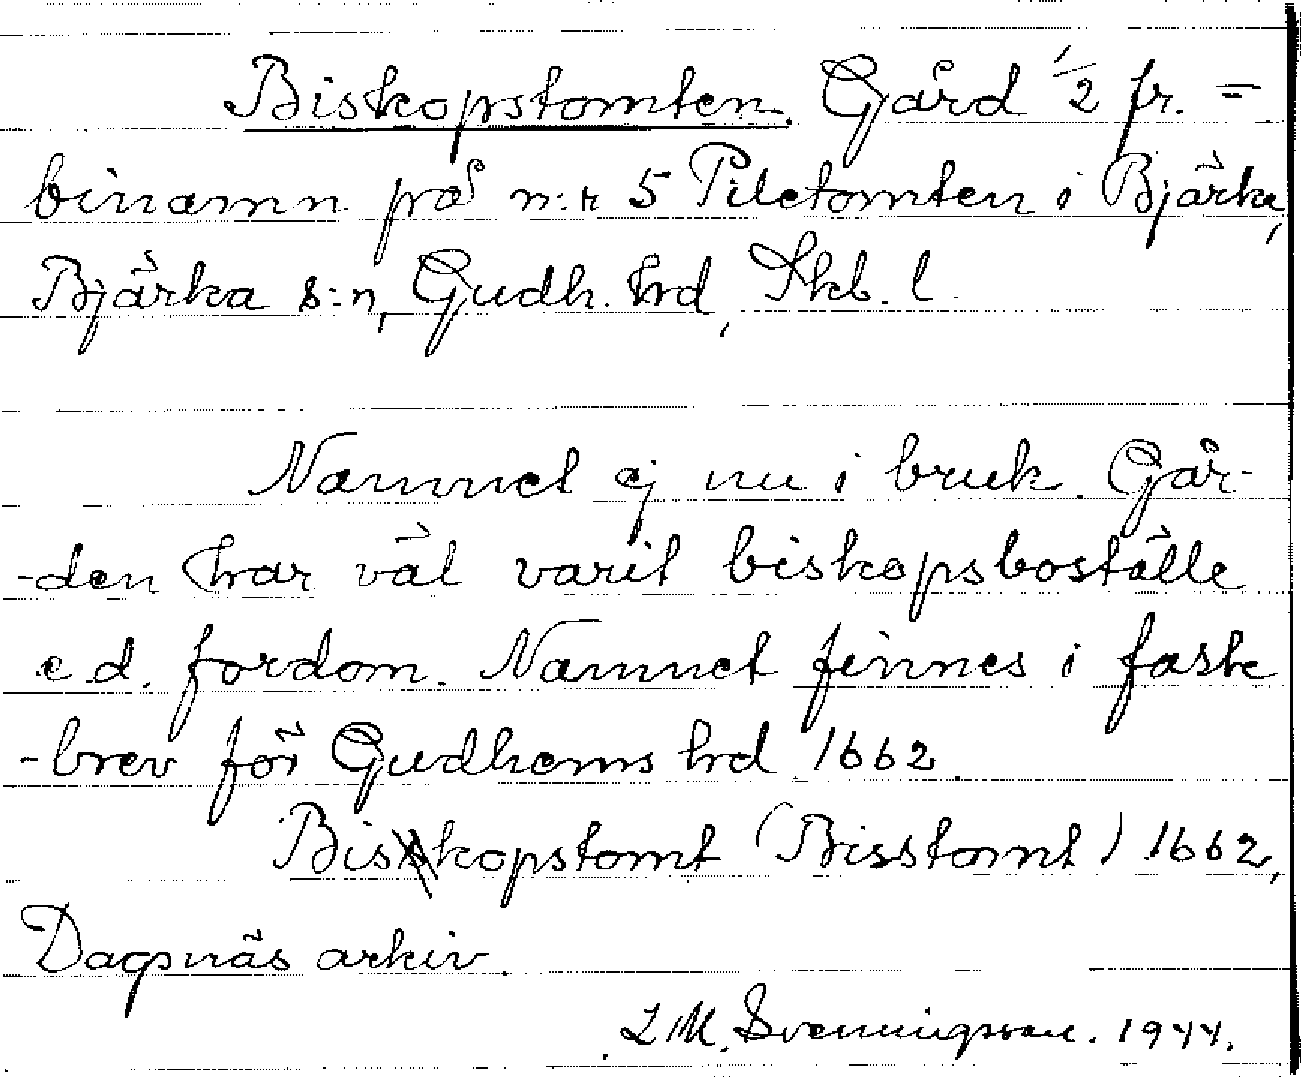 Biskopstomten. Gård 1/2 fr. =
binamn på n:r 5 Piletomten i Bjärka,
Bjärka s:n, Gudh. hrd, Skb. l.
Namnet ej nu i bruk. Går-
-den har väl varit biskopsboställe
e. d. fordom. Namnet finnes i faste
-brev för Gudhems hrd 1662.
Biskopstomt (Bisstomt) 1662,
Dagsnäs arkiv.
L. M. Svenningsson. 1944.